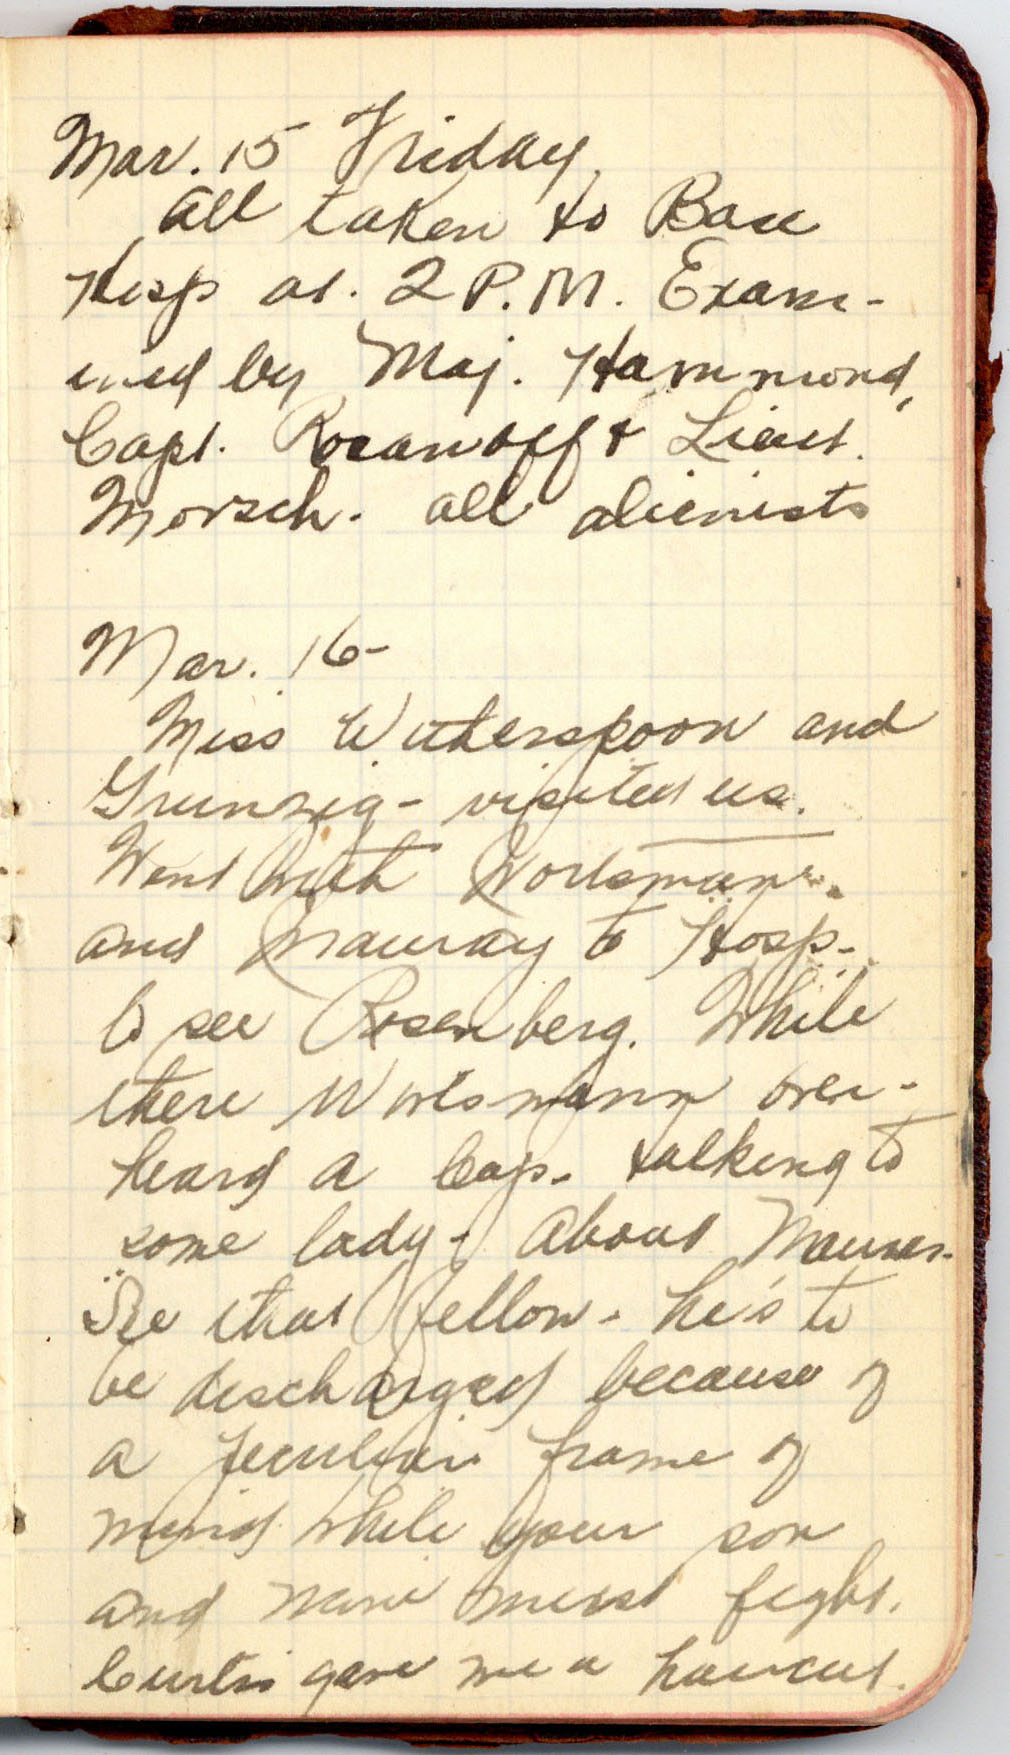 Mar. 15 Friday
All taken to Base
Hosp at. 2 P.M. Exam-
ined by Maj. Hammond,
Capt. Rosanoff & Lieut.
Morsch. all alienists
Mar. 16-
Miss Witherspoon and
Grunzig - visited us.
Went with Wortsmann.
and Mauray to Hosp-
to see Rosenberg. While
there Wortsmann over-
heard a Cap. talking to
some lady - About Maurer-
See that fellow - he's to
be discharged because of
a peculiar frame of
mind while your son
and mine must fight.
Curtis gave me a haircut.